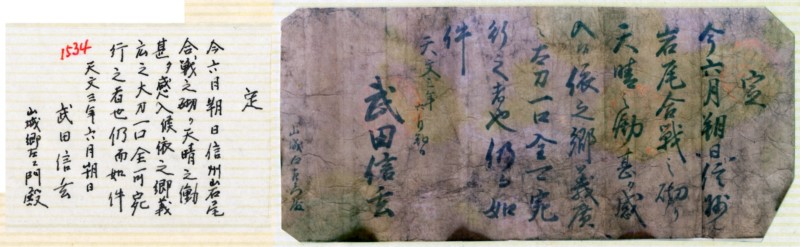 定
今六月朔日信州岩尾
合戦之砌リ天晴之働
甚タ感入候依之郷義
広之大刀一口全可宛
行之者也仍而如件
1534
天文三年六月朔日
武田信玄
山城郷左エ門殿
定
今六月朔日信州
岩尾合戦之砌リ
天晴之働甚タ感
入候依之郷義廣
之太刀一口全可宛
行之者也仍而如
件
天文三年六月朔日
武田信玄
山城